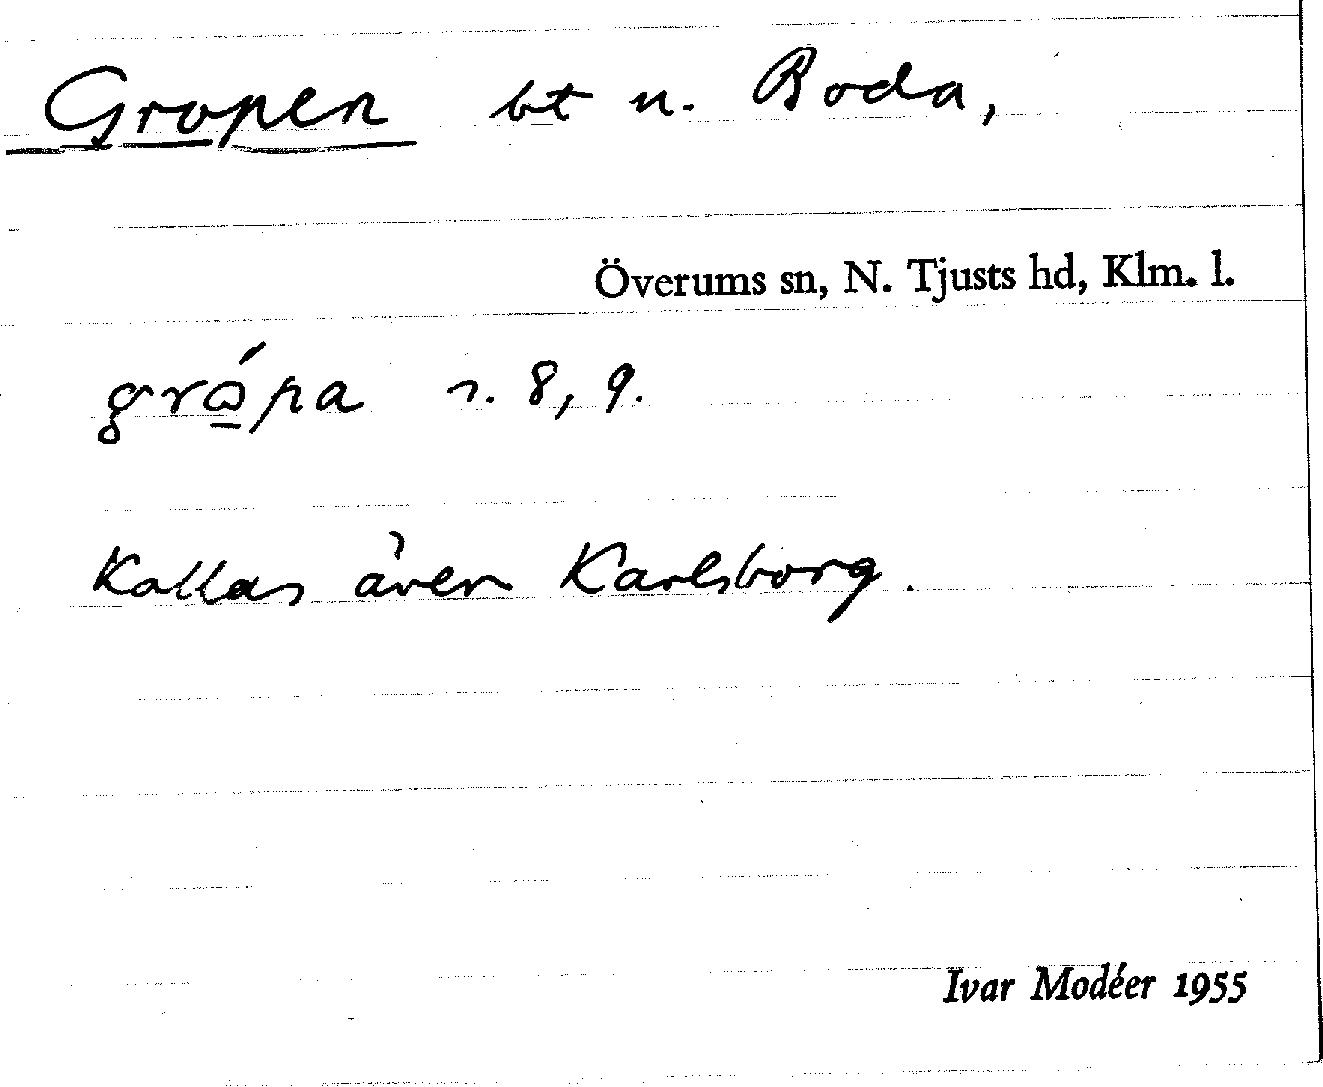 Gropen bt u. Boda,
Överums sn, N. Tjusts hd, Klm. l.
grópa r. 8, 9.
Kallas även Karlsborg.
Ivar Modéer 1955